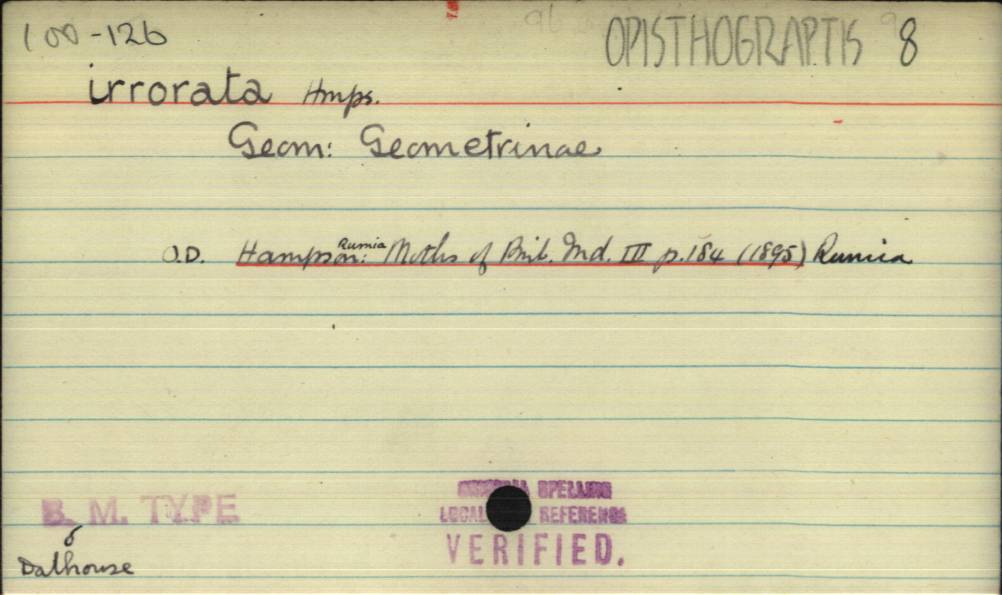 100-126 96 OPISTHOGRAPTIS 8
irrorata Hmps.
Geom: Geometrinae
Rumia
O.D. Hampson: Moths of Brit. Ind. III p.184 (1895) Rumia
B. M. TYPE
♂
Dalhouse
SPELLING
LOCAL REFERENCE
VERIFIED.